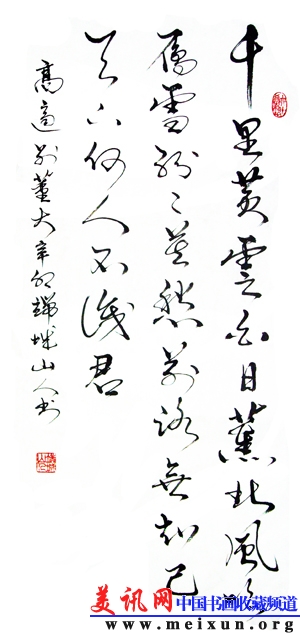 千里黄雲白日薰北風吹
雁雪紛々莫愁前路無知己
天下何人不識君
高適别董大辛卯城山人书
美讯网 中国书画收藏频道
www.meixun.org